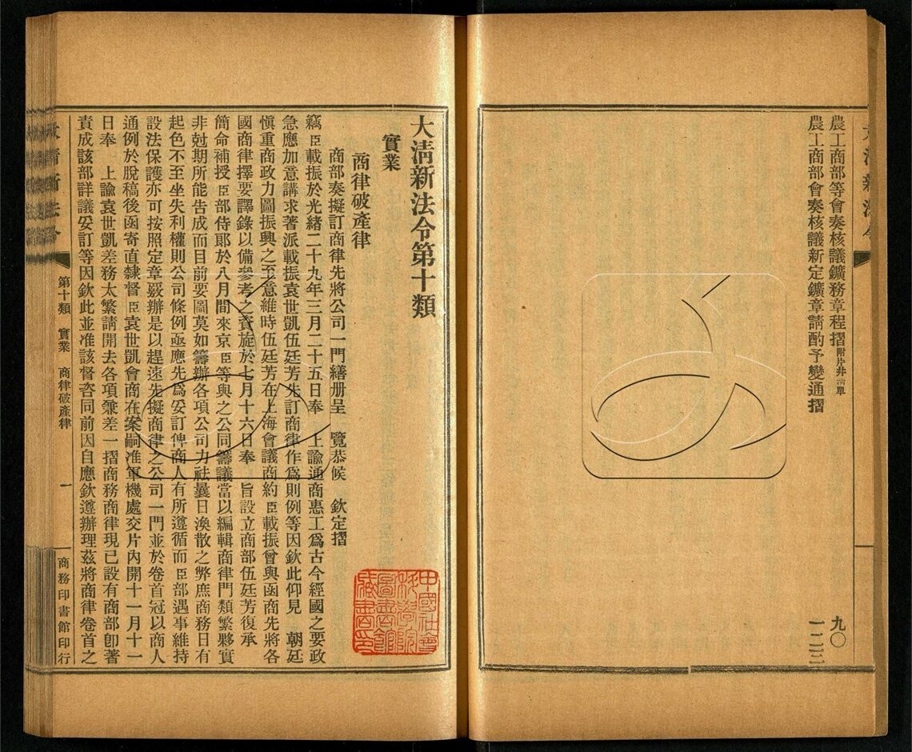 大清新法令
農工商部等會奏核議鑛務章程摺附片并清單 九〇
農工商部會奏核議新定鑛章請酌予變通摺 一二三
大清新法令第十類
實業
商律破產律
商部奏擬訂商律先將公司一門繕册呈 覽恭候 欽定摺
竊臣載振於光緒二十九年三月二十五日奉 上諭通商惠工爲古今經國之要政
急應加意講求著派載振袁世凱伍廷芳先訂商律作爲則例等因欽此仰見 朝廷
愼重商政力圖振興之至意維時伍廷芳在上海會議商約臣載振曾與函商先將各
國商律擇要譯錄以備參考之資旋於七月十六日奉 旨設立商部伍廷芳復承
簡命補授臣部侍郞於八月間來京臣等與之公同籌議當以編輯商律門類繁夥實
非尅期所能告成而目前要圖莫如籌辦各項公司力袪曩日渙散之弊庶商務日有
起色不至坐失利權則公司條例亟應先爲妥訂俾商人有所遵循而臣部遇事維持
設法保護亦可按照定章覈辦是以趕速先擬商律之公司一門並於卷首冠以商人
通例於脫稿後函寄直隸督臣袁世凱會商在案嗣准軍機處交片內開十一月十一
日奉 上諭袁世凱差務太繁請開去各項兼差一摺商務商律現已設有商部卽著
責成該部詳議妥訂等因欽此並准該督咨同前因自應欽遵辦理茲將商律卷首之
第十類 實業 商律破產律 一 商務印書館印行
中國社會
科學院
圖書館